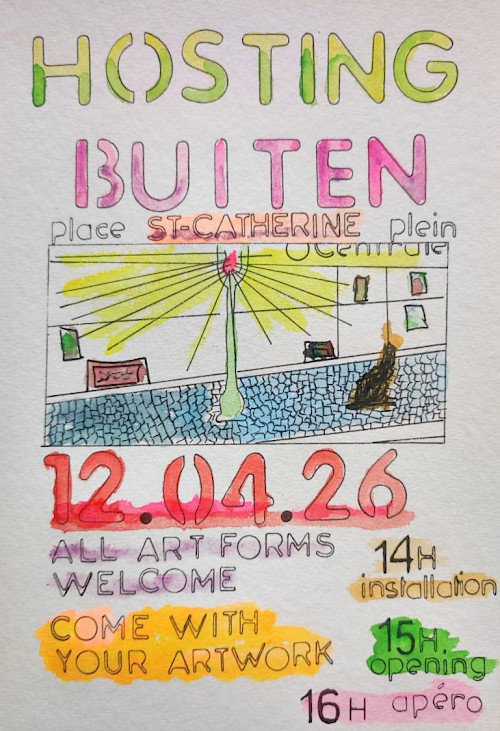 HOSTING
BUITEN
place ST-CATHERINE plein
Centrale
12.04.26
ALL ART FORMS
WELCOME
14H
installation
COME WITH
YOUR ARTWORK
15H
opening
16H apéro